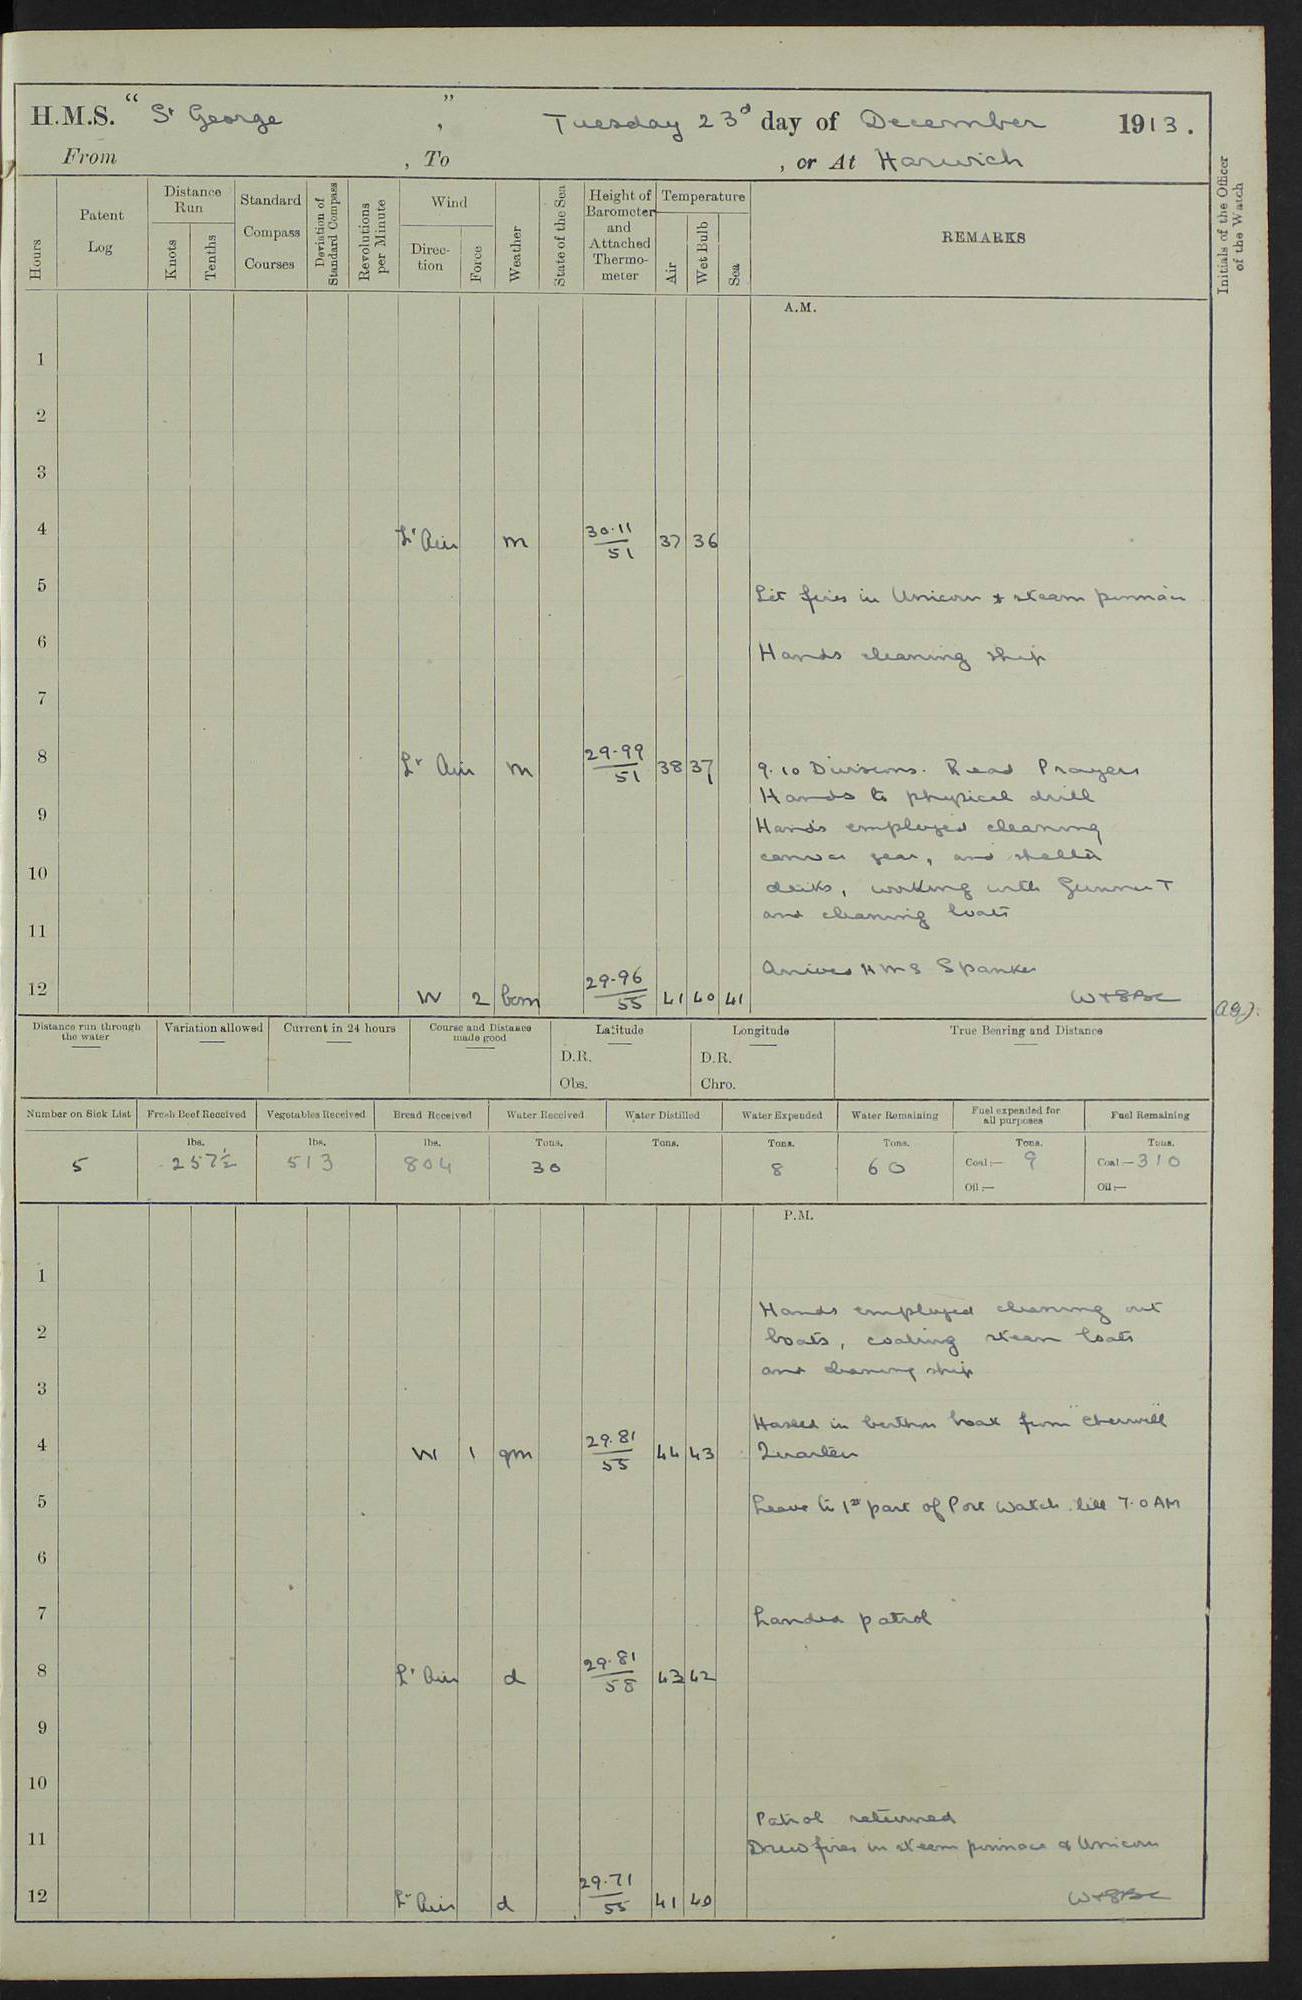 H.M.S. "St George", Tuesday 23d day of December 1913.
From , To , or At Harwich
Hours
Patent Log
Distance Run
Knots
Tenths
Standard Compass Courses
Deviation of Standard Compass
Revolutions per Minute
Wind
Direc-tion
Force
Weather
State of the Sea
Height of Barometer and Attached Thermo-meter
Temperature
Air
Wet Bulb
Sea
REMARKS
Initials of the Officer of the Watch
A.M.
1
2
3
4 Lt Air m 30.11/51 37 36
5 Lit fires in Unicorn & steam pinnace
6 Hands cleaning ship
7
8 Lt Air m 29.99/51 38 37 9.10 Divisions. Read Prayers
Hands to physical drill
9 Hands employed cleaning
canvas gear, and shelter
10 decks, working with Gunner T
and cleaning boats
11
Arrived HMS Spanker
12 W 2 bcm 29.96/55 41 40 41
Distance run through the water
Variation allowed
Current in 24 hours
Course and Distance made good
Latitude
D.R.
Obs.
Longitude
D.R.
Chro.
True Bearing and Distance
Number on Sick List
Fresh Beef Received
Vegetables Received
Bread Received
Water Received
Water Distilled
Water Expended
Water Remaining
Fuel expended for all purposes
Fuel Remaining
lbs. lbs. lbs. Tons. Tons. Tons. Tons. Tons. Tons.
5 257½ 513 804 30 8 60 Coal:— 9 Coal:—310
Oil:— Oil:—
P.M.
1
Hands employed cleaning out
2 boats, coaling steam boats
and cleaning ship
3
in berthon boat from "Cherwell"
4 W 1 gm 29.81/55 44 43 Quarters
5 Leave to 1st part of Port Watch till 7.0 AM
6
7 Landed patrol
8 Lt Air d 29.81/58 43 42
9
10
Patrol returned
11 Drew fires in steam pinnace & Unicorn
12 Lt Air d 29.71/55 41 40